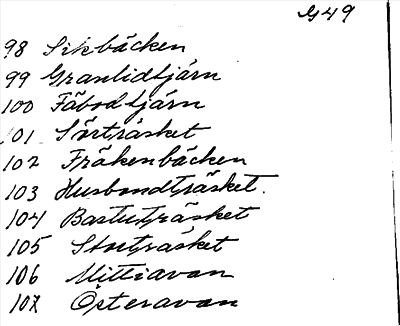 G49
98 Sikbäcken
99 Granlidtjärn
100 Fäbodtjärn
101 Sörträsket
102 Fräkenbäcken
103 Husbondträsket.
104 Bastuträsket
105 Storträsket
106 Mittiavan
107 Österavan